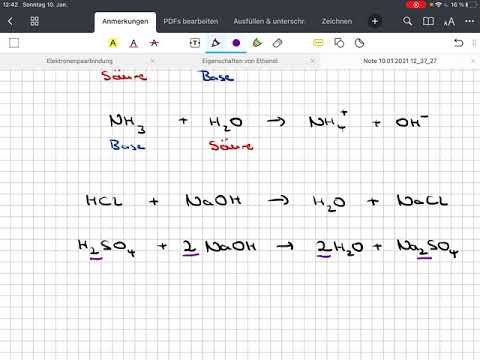 12:42 Sonntag 10. Jan. 16 %
Anmerkungen PDFs bearbeiten Ausfüllen & unterschr. Zeichnen
Elektronenpaarbindung Eigenschaften von Ethanol Note 10.01.2021 12_37_27
Säure Base
NH₃ + H₂O → NH₄⁺ + OH⁻
Base Säure
HCL + NaOH → H₂O + NaCL
H₂SO₄ + 2 NaOH → 2H₂O + Na₂SO₄